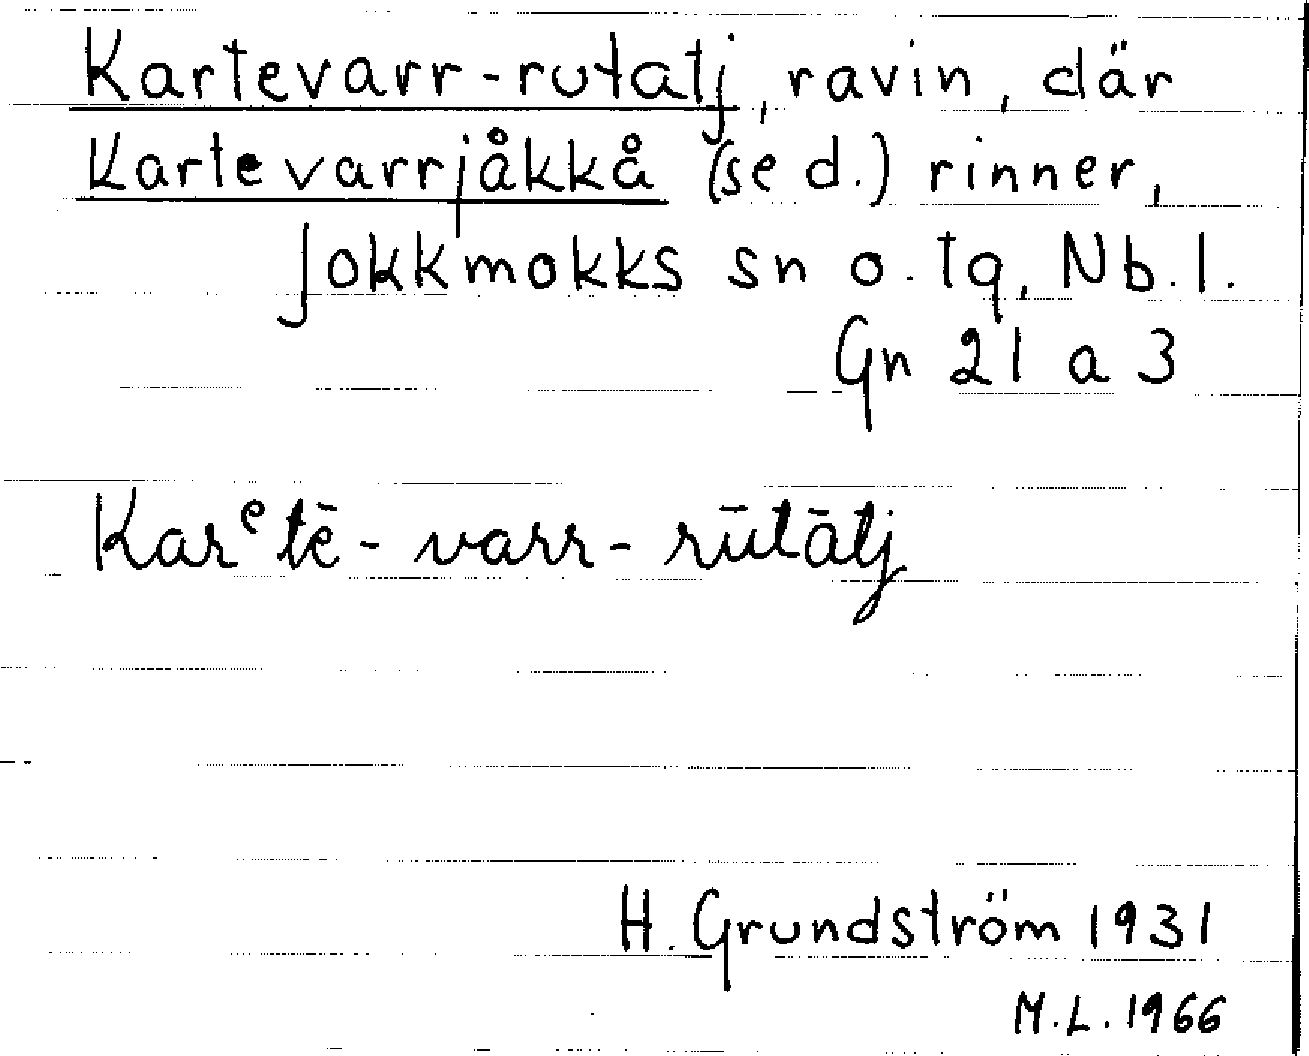 Kartevarr-rutatj, ravin, där
Kartevarrjåkkå (se d.) rinner,
Jokkmokks sn o. tg, Nb. l.
Gn 21 a 3
Karᵉtē-varr-rūtātj
H. Grundström 1931
M.L. 1966